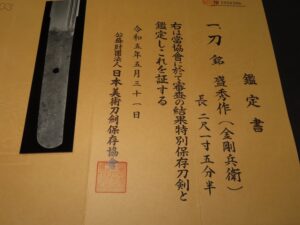 鑑定書
一、刀 銘 盛秀作(金剛兵衛)
長 二尺一寸五分半
右は當協會に於て審査の結果特別保存刀剣と
鑑定しこれを証する
令和五年五月三十一日
公益財団法人 日本美術刀剣保存協會